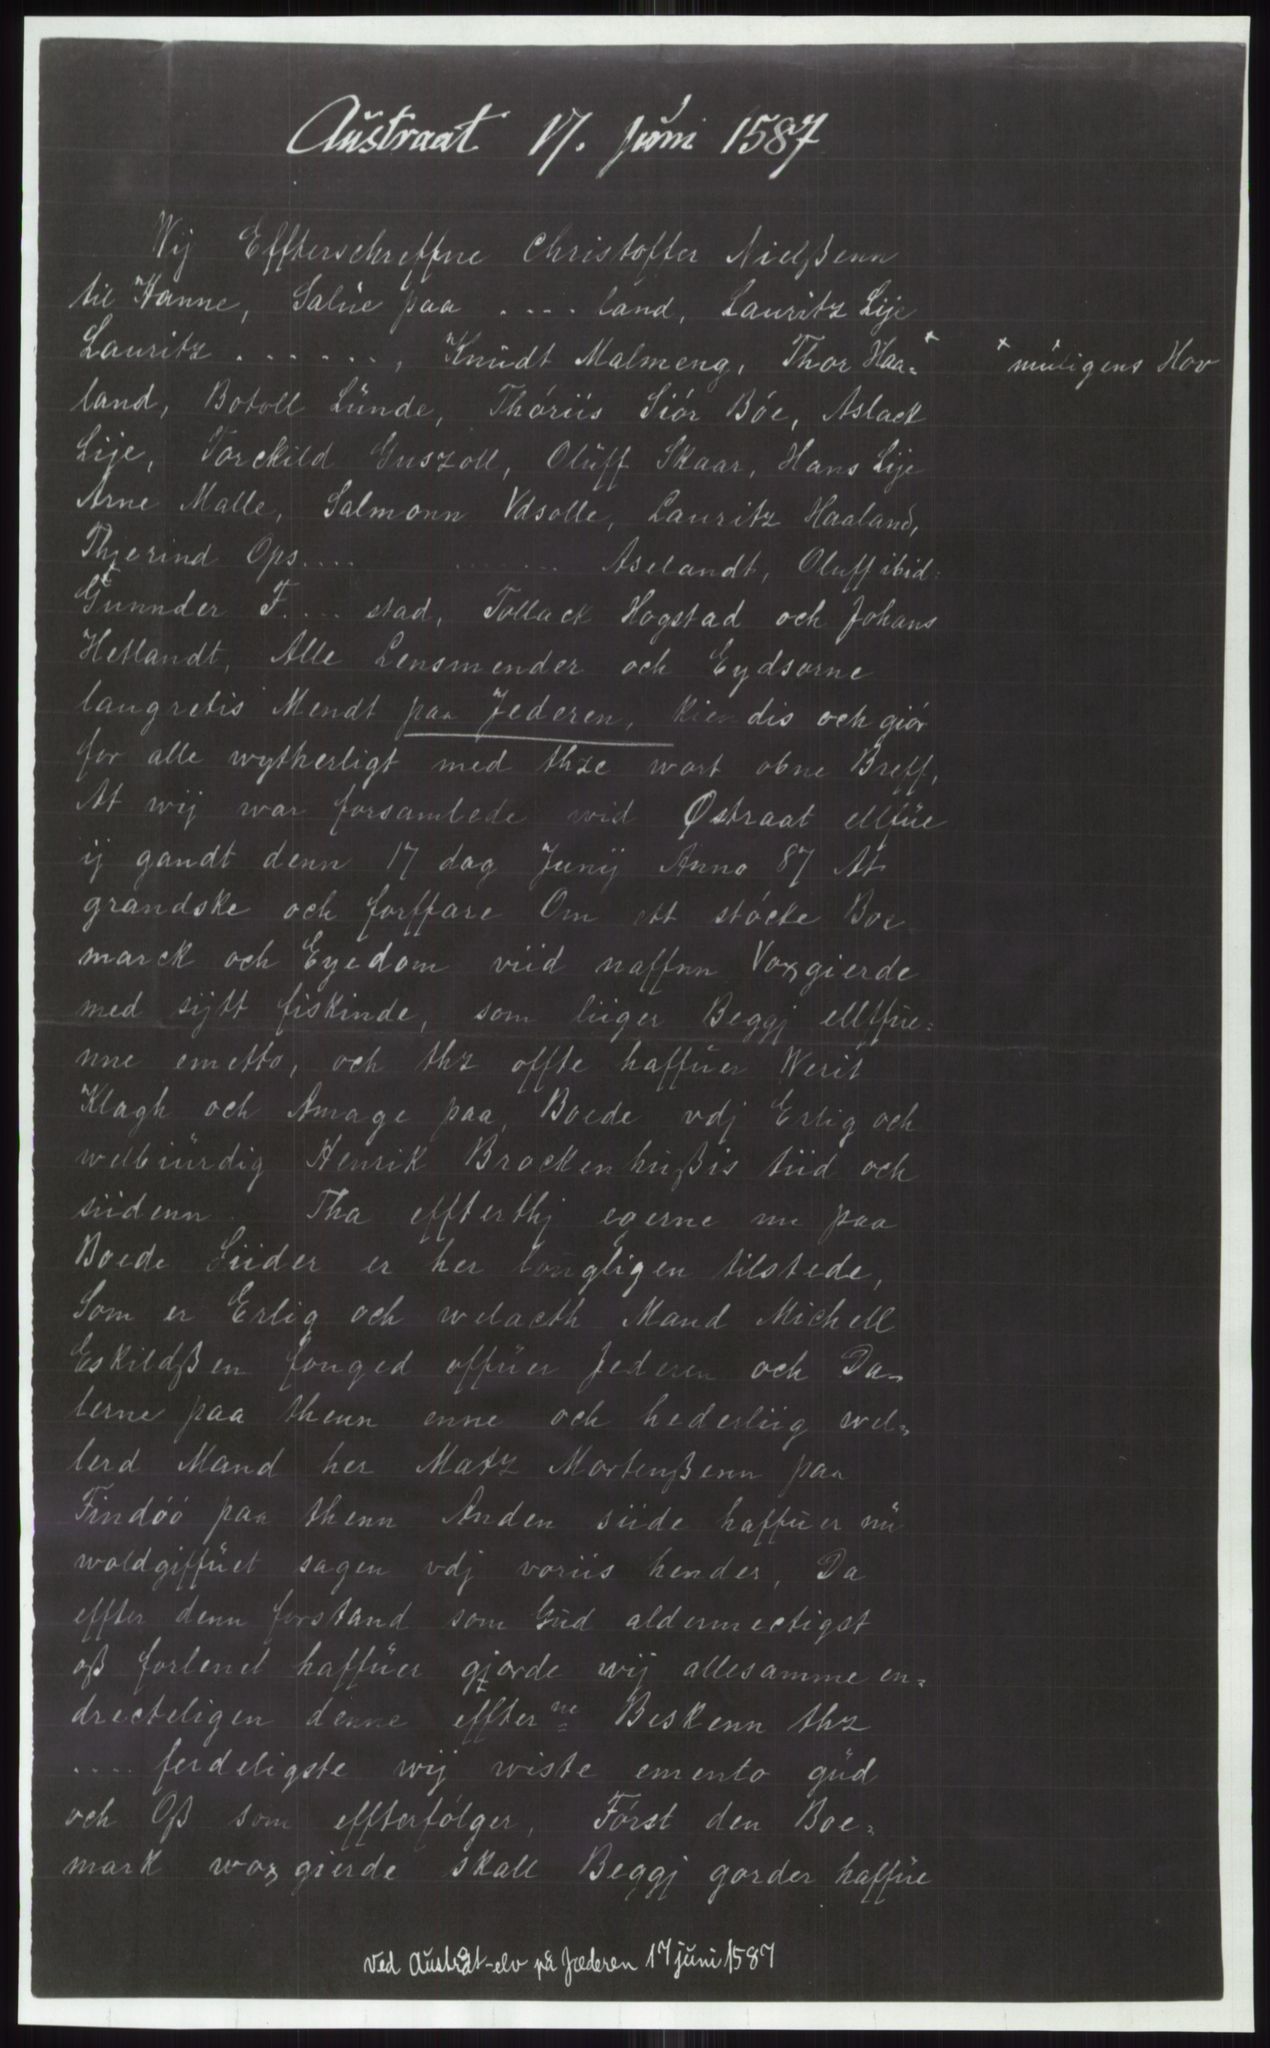 Austraat 17. Juni 1587
Wij Effterschreffne Christoffer Nielßenn
til Hanne, Salúe paa .... land, Lauritz Lije
Lauritz ......., Knúdt Malmeng, Thor Haa=x x muligens Hov
land, Botoll Lúnde, Thóriis Siór Bóe, Aslack
Lije, Torckild Guszoll, Olúff Skaar, Hans Lije
Arne Malle, Salmonn Vdsolle, Lauritz Haaland,
Thjerind Ops.... ....... Aselandt, Oluff ibid:
Gunnder F.... stad, Tollack Hogstad och Johans
Hetlandt, Alle Lensmender och Eydsorne
laugretis Mendt paa Jederen, kiendis och giór
for alle wytherligt med thze wort obne Breff,
At wij war forsamlede wid Østraat ellfúe
ij gandt denn 17 dag Junij Anno 87 At
grandske och forffare Om ett stócke Boe=
marck och Eyedom viid naffnn Voxgierde
med sijtt fiskinde, som liiger Beggj ellfúe=
nne emetto, och thz offte haffúer Werit
Klagh och Amage paa, Boede vdj Erlig och
welbiúrdig Henrik Brockenhúßis tiid och
siidenn. Tha effterthj egerne nu paa
Boede Siider er her longligen tilstede,
Som er Erlig och welacth Mand Michell
Eskildßen fouged offúer Jederen och Da=
lerne paa thenn enne och hederliig wel=
lerd Mand her Matz Mortenßenn paa
Findóó paa thenn Anden siide haffúer nú
woldgiffúet sagen vdj voriis hender, Da
effter denn forstand som Gúd aldermectigst
oß forlent haffúer gjorde wij allesamme en=
drecteligen denne effterne Beskenn thz
.... ferdeligste wij wiste emento gúd
och Oß som effterfólger, Fórst den Boe=
mark woxgierde skall Beggj gorder haffúe
ved Austråt-elv på Jæderen 17 juni 1587